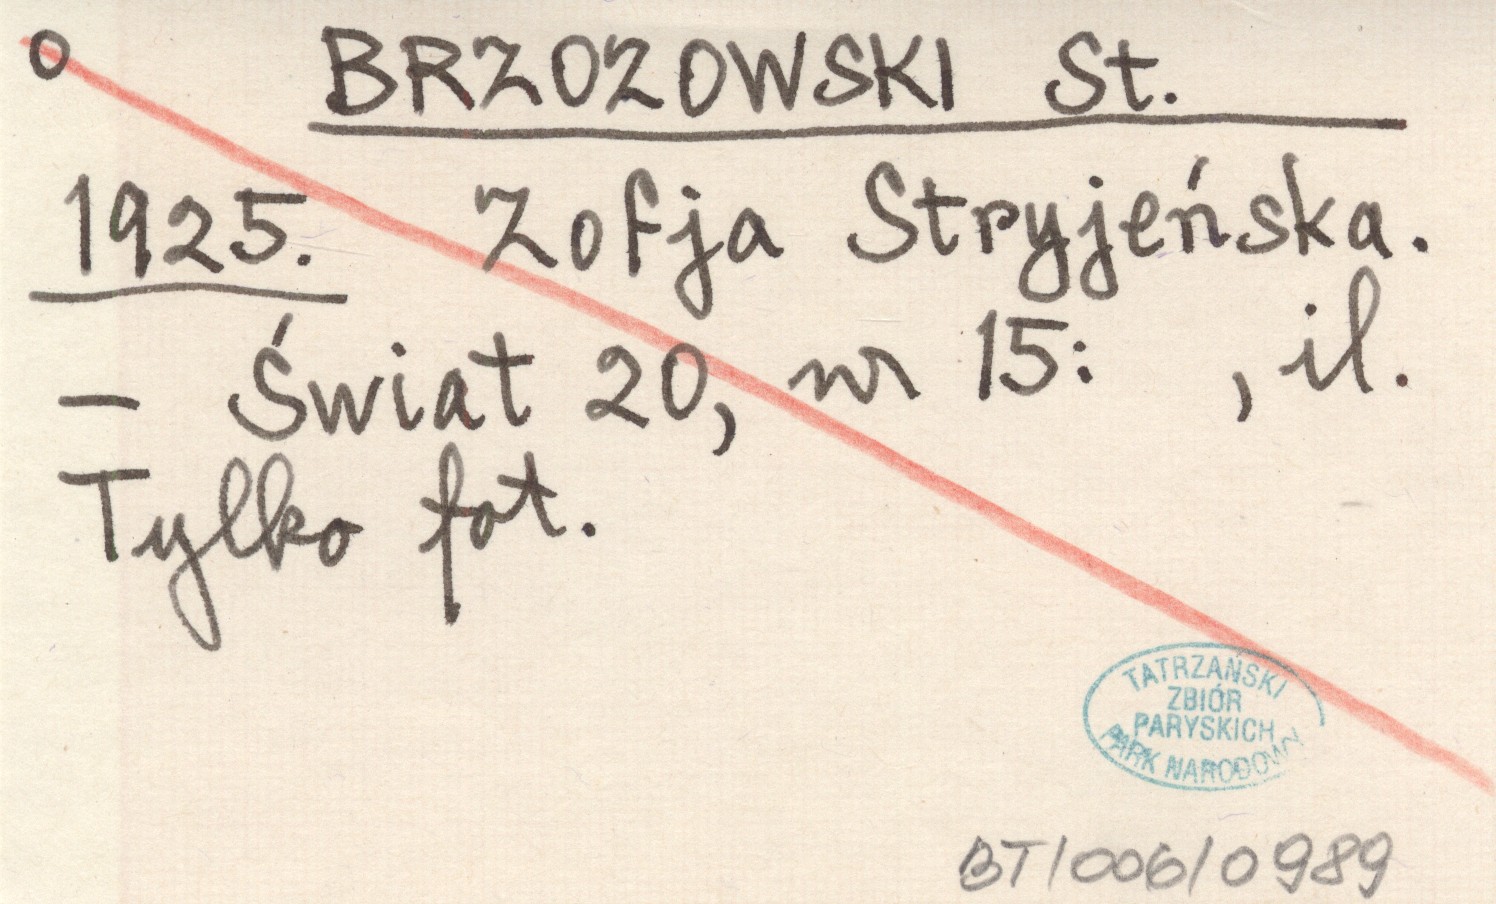 o BRZOZOWSKI St.
1925. Zofja Stryjeńska.
- Świat 20, nr 15: , il.
Tylko fot.
TATRZAŃSKI
ZBIÓR
PARYSKICH
PARK NARODOWY
BT/006/0989